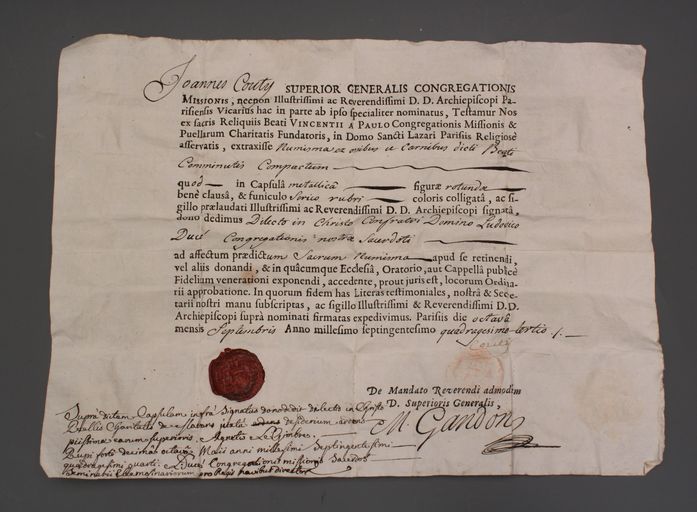 Joannes Couty SUPERIOR GENERALIS CONGREGATIONIS
MISSIONIS, necnon Illustrissimi ac Reverendissimi D. D. Archiepiscopi Pa-
risiensis Vicarius hac in parte ab ipso specialiter nominatus, Testamur Nos
ex sacris Reliquiis Beati VINCENTII A PAULO Congregationis Missionis &
Puellarum Charitatis Fundatoris, in Domo Sancti Lazari Parisiis Religiosè
asservatis, extraxisse Numisma ex ossibus et Carnibus dicti Beati
Comminutis Compactum
quod in Capsulâ metallicâ figuræ rotundæ
benè clausâ, & funiculo serico rubri coloris colligatâ, ac si-
gillo prælaudati Illustrissimi ac Reverendissimi D. D. Archiepiscopi signatâ,
dono dedimus Dilecto in Christo Confratri Domino Ludovico
Ducé Congregationis nostræ Sacerdoti
ad affectum prædictum Sacrum Numisma apud se retinendi,
vel aliis donandi, & in quâcumque Ecclesiâ, Oratorio, aut Cappellâ publicè
Fidelium venerationi exponendi, accedente, prout juris est, locorum Ordina-
rii approbatione. In quorum fidem has Literas testimoniales, nostrâ & Secre-
tarii nostri manu subscriptas, ac sigillo Illustrissimi & Reverendissimi D. D.
Archiepiscopi suprà nominati firmatas expedivimus. Parisiis die octavâ
mensis Septembris Anno millesimo septingentesimo quadragesimo tertio
Couty
De Mandato Reverendi admodùm
D. Superioris Generalis,
M. Gandon
Supra dictam Capsulam infra signatus dono dedit dilectis in Christo
Puellis Charitatis de
piissimæ earum superioris, Agnetis
decimâ octavâ Maii anni millesimi Septingentesimi
quadragesimi quarti Congregationis missionis Sacerdos